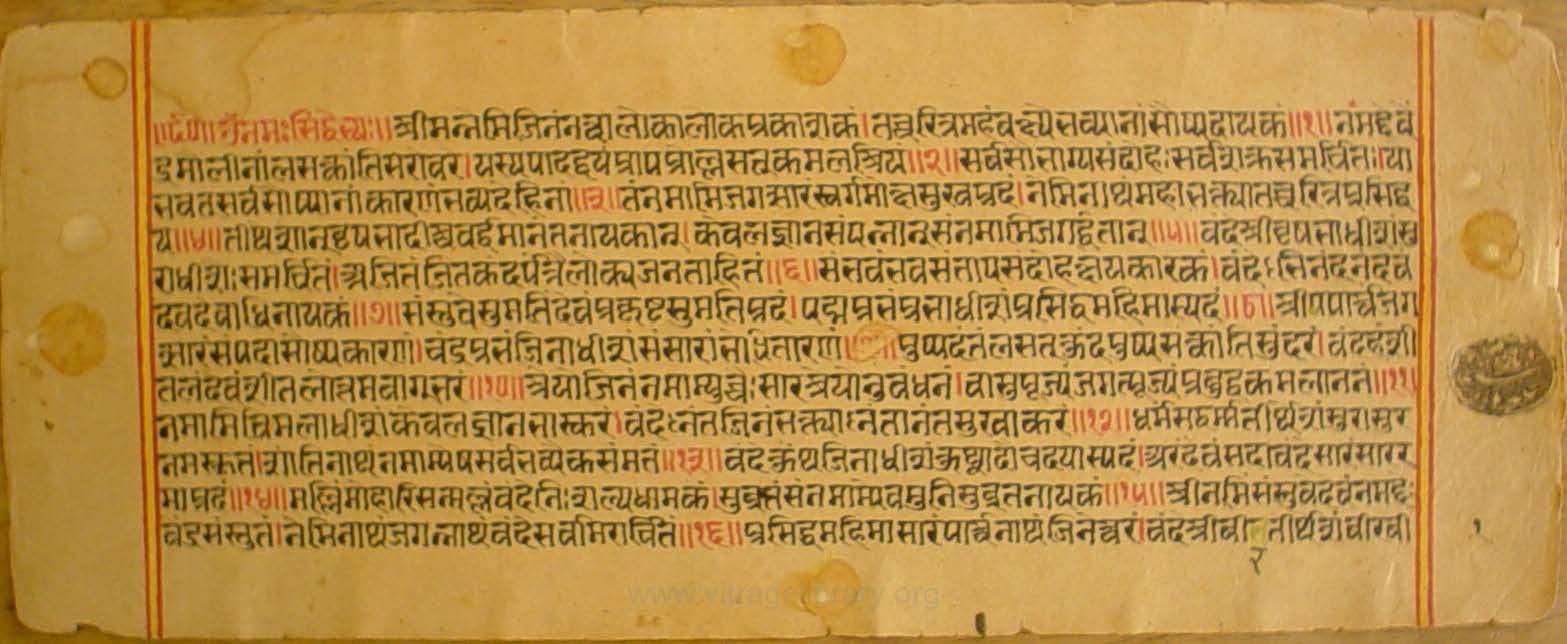 ॥र्द०॥ ॐ नमः सिद्धेभ्यः॥ श्रीमन्नेमिजिनं नत्वा लोकालोकप्रकाशकं। तच्चरित्रमहं वक्ष्ये भव्यानां सौष्यदायकं॥१॥ नमद्देवें
द्रमालीनां लसत्कांतिसरोवरे। यस्य पादद्वयं प्राप प्रोल्लसत्कमलश्रियं॥२॥ सर्वसौभाग्यसंदोहः सर्वशक्रसमर्चितः। यो
भवेत्सर्वसौष्यानां कारणं भव्यदेहिनां॥३॥ तं नमामि जगत्सारं स्वर्गमोक्षसुखप्रदं। नेमिनाथं महाभक्त्या तच्चरित्रप्रसिद्ध
ये॥४॥ तीर्थेशान् वृषभादींश्च वर्द्धमानांतनायकान्। केवलज्ञानसंपन्नान् संनमामि जगद्धितान्॥५॥ वंदे श्रीवृषभाधीशं सु
राधीशैः समर्चितं। अजितं जितकंदर्पं त्रैलोक्यजनताहितं॥६॥ संभवं भवसंतापसंदोहक्षयकारकं। वंदेऽभिनंदनं देवं
देवदेवाधिनायकं॥७॥ संस्तुवे सुमतिं देवं प्रकृष्टसुमतिप्रदं। पद्मप्रभं प्रभाधीशं प्रसिद्धमहिमास्पदं॥८॥ श्रीसुपार्श्वं जग
त्सारं संपदासौष्यकारणं। चंद्रप्रभं जिनाधीशं संसारांभोधितारणं पुष्पदंतं लसत्कुंदपुष्पसत्कांतिसुंदरं। वंदेहं शी
तलं देवं शीतलोत्तमवाग्भरं॥१०॥ श्रेयोजिनं नमाम्युच्चैः सारश्रेयोनुबंधनं। वासुपूज्यं जगत्पूज्यं प्रबुद्धकमलाननं॥११
नमामि विमलाधीशं केवलज्ञानभास्करं। वंदेऽनंतजिनं भक्त्याऽनंतानंतसुखाकरं॥१२॥ धर्मं सद्धर्मतीर्थेशं सुरासुर
नमस्कृतं। शांतिनाथं नमाम्येष सर्वभव्यैकसंमतं॥१३॥ वंदे कुंथुजिनाधीशं कुंथ्वादौ च दयास्पदं। अरं देवं सदा वंदे सारं सारर
माप्रदं॥१४॥ मल्लिं मोहारिसन्मल्लं वंदे निःशल्यधामकं। सुव्रतं संनमाम्येव मुनिसुव्रतनायकं॥१५॥ श्रीनमिं संस्तुवे देवं नमद्दे
वेंद्रसंस्तुतं। नेमिनाथं जगन्नाथं वंदे सर्वामरार्चितं॥१६॥ प्रसिद्धमहिमासारं पार्श्वनाथं जिनेश्वरं। वंदे श्रीवी तीर्थेशं वीरवी
१
र
www.vitragelibrary.org